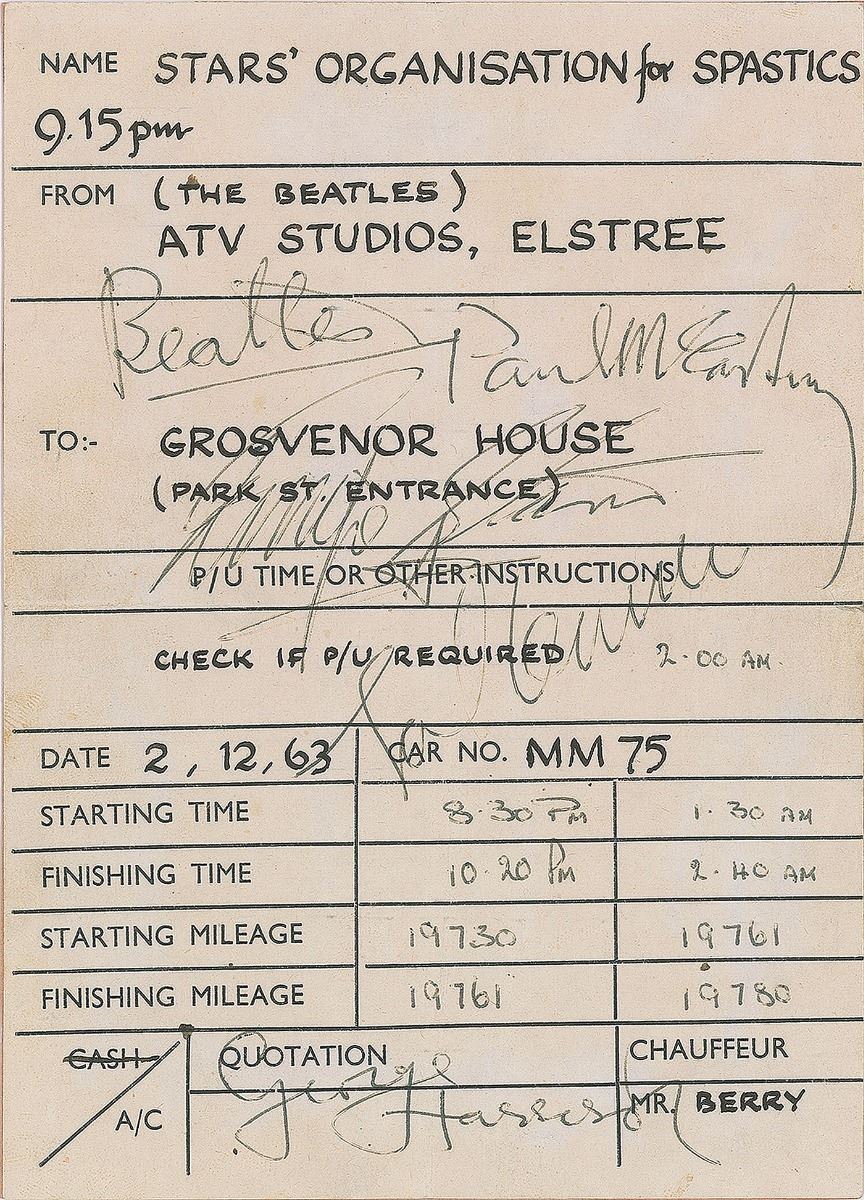 NAME STARS' ORGANISATION for SPASTICS
9.15pm
FROM (THE BEATLES)
ATV STUDIOS, ELSTREE
Beatles Paul McCartney
TO:- GROSVENOR HOUSE
(PARK ST. ENTRANCE)
Ringo Starr
P/U TIME OR OTHER INSTRUCTIONS
CHECK IF P/U REQUIRED 2.00 AM.
John Lennon
DATE 2, 12, 63 CAR NO. MM 75
STARTING TIME 8.30 PM 1.30 AM
FINISHING TIME 10.20 PM 2.40 AM
STARTING MILEAGE 19730 19761
FINISHING MILEAGE 19761 19780
CASH QUOTATION CHAUFFEUR
A/C MR. BERRY
George Harrison